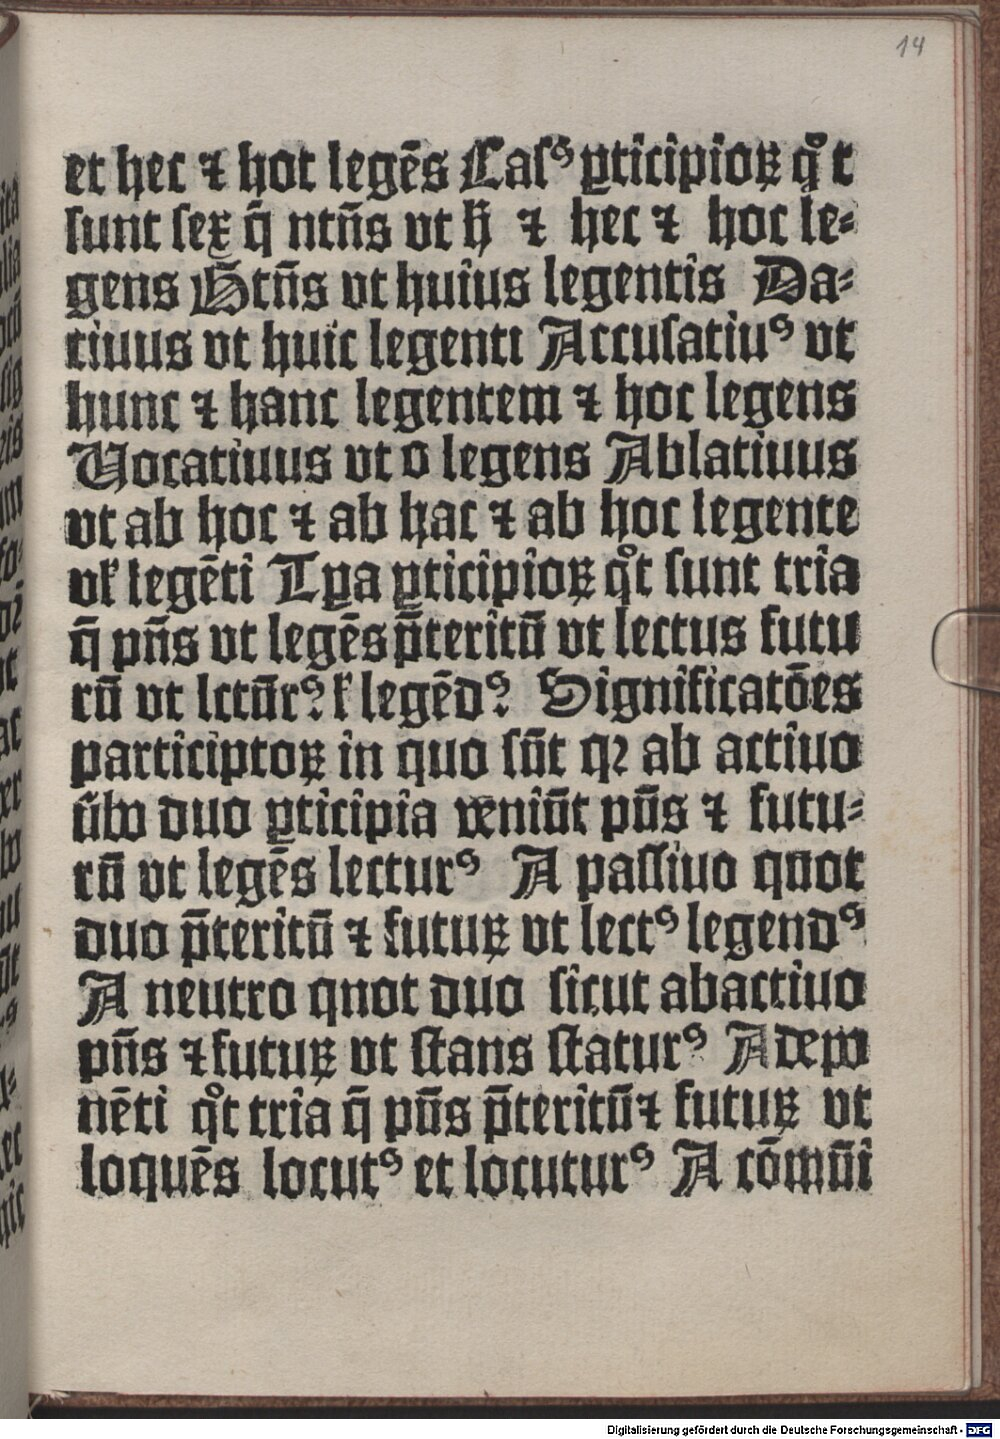 14
et hec ⁊ hot legēs Casꝰ ꝑticipioꝝ qͦt
sunt sex q̄ ntn̄s vt h̄ ⁊ hec ⁊ hoc le⸗
gens Gt̄n̄s vt huius legentis Da⸗
tiuus vt huic legenti Accusatiuꝰ vt
hunc ⁊ hanc legentem ⁊ hoc legens
Vocatiuus vt o legens Ablatiuus
vt ab hoc ⁊ ab hac ⁊ ab hoc legente
vꝉ legēti Tꝑa ꝑticipioꝝ qͦt sunt tria
q̄ pn̄s vt legēs p̄teritū vt lectus futu
rū vt lctūrꝰ? ꝉ legēdꝰ? Significatōes
participtoꝝ in quo sūt qꝛ ab actiuo
v̄bo duo ꝑticipia veniūt pn̄s ⁊ futu⸗
rū vt legēs lecturꝰ A passiuo quot
duo p̄teritū ⁊ futuꝝ vt lectꝰ legendꝰ
A neutro qnot duo sicut abactiuo
pn̄s ⁊ futuꝝ vt stans staturꝰ A depo
nēti qͦt tria q̄ pn̄s p̄teritū ⁊ futuꝝ vt
loquēs locutꝰ et locuturꝰ A cōmūi
Digitalisierung gefördert durch die Deutsche Forschungsgemeinschaft - DFG